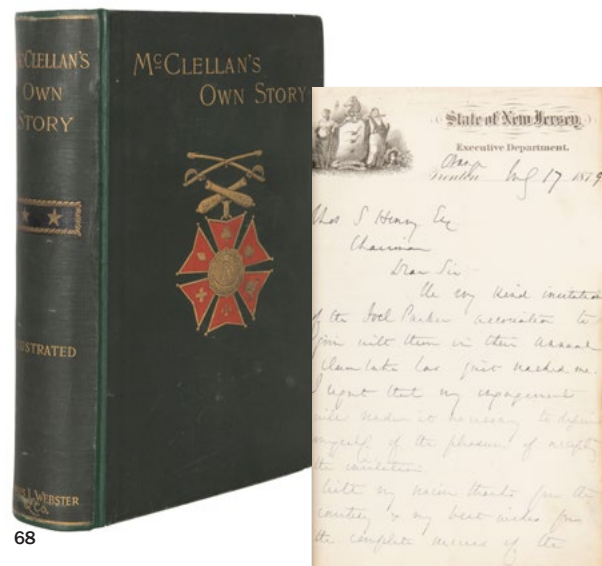 McCLELLAN'S
OWN
STORY
ILLUSTRATED
WEBSTER
& Co.
McCLELLAN'S
OWN STORY
State of New Jersey,
Executive Department.
Orange
Trenton Aug 17 1879
Chas S Henry Esq
Chairman
Dear Sir
The very kind invitation
of the Joel Parker association to
join with them in their annual
clam bake has just reached me.
I regret that my engagements
will render it necessary to deprive
myself of the pleasure of accepting
the invitation.
With my warm thanks for the
courtesy & my best wishes for
the complete success of the
68